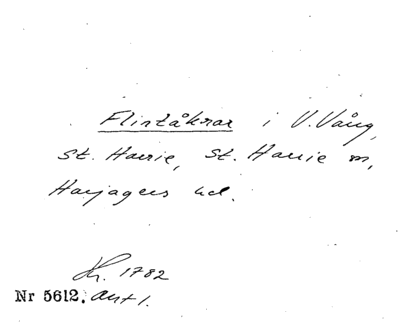 Flintåkrar i V. Vång,
St. Harrie, St. Harrie sn,
Harjagers hd.
Kr. 1782
Nr 5612. Ant 1.